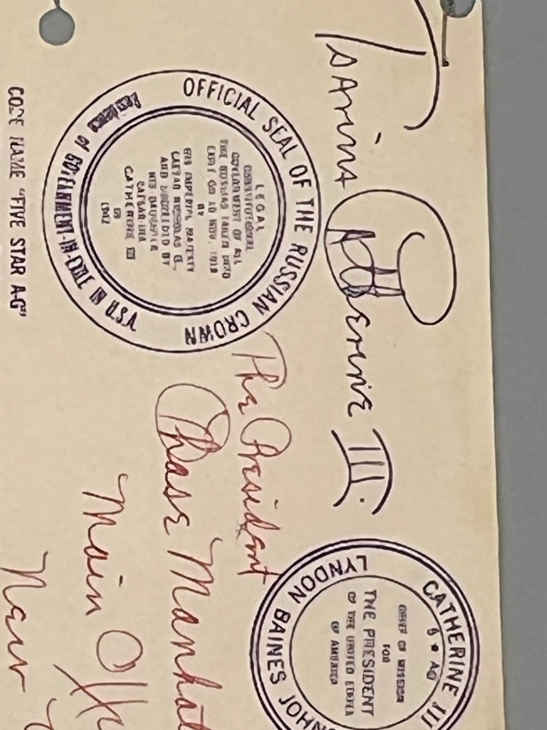 Tsarina Catherine III.
OFFICIAL SEAL OF THE RUSSIAN CROWN
Residence of GOVERNMENT-IN-EXILE IN USA
LEGAL
CONSTITUTIONAL
GOVERNMENT OF ALL
THE RUSSIAS TAKEN INTO
BY
HIS IMPERIAL MAJESTY
CAESAR NICHOLAS II,
AND SUCCEEDED BY
HIS DAUGHTER
CATHERINE III
IN
CODE NAME "FIVE STAR A-G"
The President
Chase Manhat
Main Off
New
CATHERINE III
5 ★ AG
LYNDON BAINES JOHNSO
CHIEF OF MISSION
FOR
THE PRESIDENT
OF THE UNITED STATES
OF AMERICA